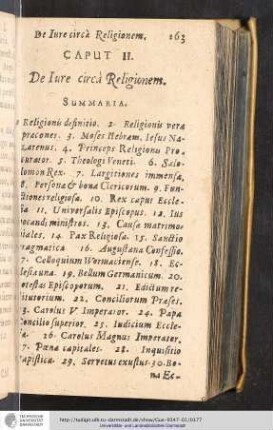 De Iure circà Religionem. 163
CAPUT II.
De Iure circà Religionem.
SUMMARIA.
Religionis definitio. 2. Religionis vera
pracones. 3. Moses Hebraeus, Iesus Na-
zarenus. 4. Princeps Religionis Pro-
curator. 5. Theologi Veneti. 6. Salo-
lomon Rex. 7. Largitiones immensa,
8. Persona & bona Clericorum. 9. Fun-
ctiones religiosa. 10. Rex caput Eccle-
sia 11. Universalis Episcopus. 12. Ius
vocandi ministros. 13. Causa matrimo-
niales. 14. Pax Religiosa. 15. Sanctio
ragmatica 16. Augustana Confessio.
7. Colloquium Wormaciense. 18. Ec-
clesia una. 19. Bellum Germanicum. 20.
otestas Episcoporum. 21. Edictum re-
titutorium. 22. Conciliorum Prases.
3. Carolus V. Imperator. 24. Papa
Concilio superior. 25. Iudicium Eccle-
sia. 26. Carolus Magnus Imperator,
7. Poena capitales. 28. Inquisitio
apistica. 29. Servetus exustus. 30. Bo-
na Ec-
http://tudigit.ulb.tu-darmstadt.de/show/Gue-9347-01/0177
Universitäts- und Landesbibliothek Darmstadt